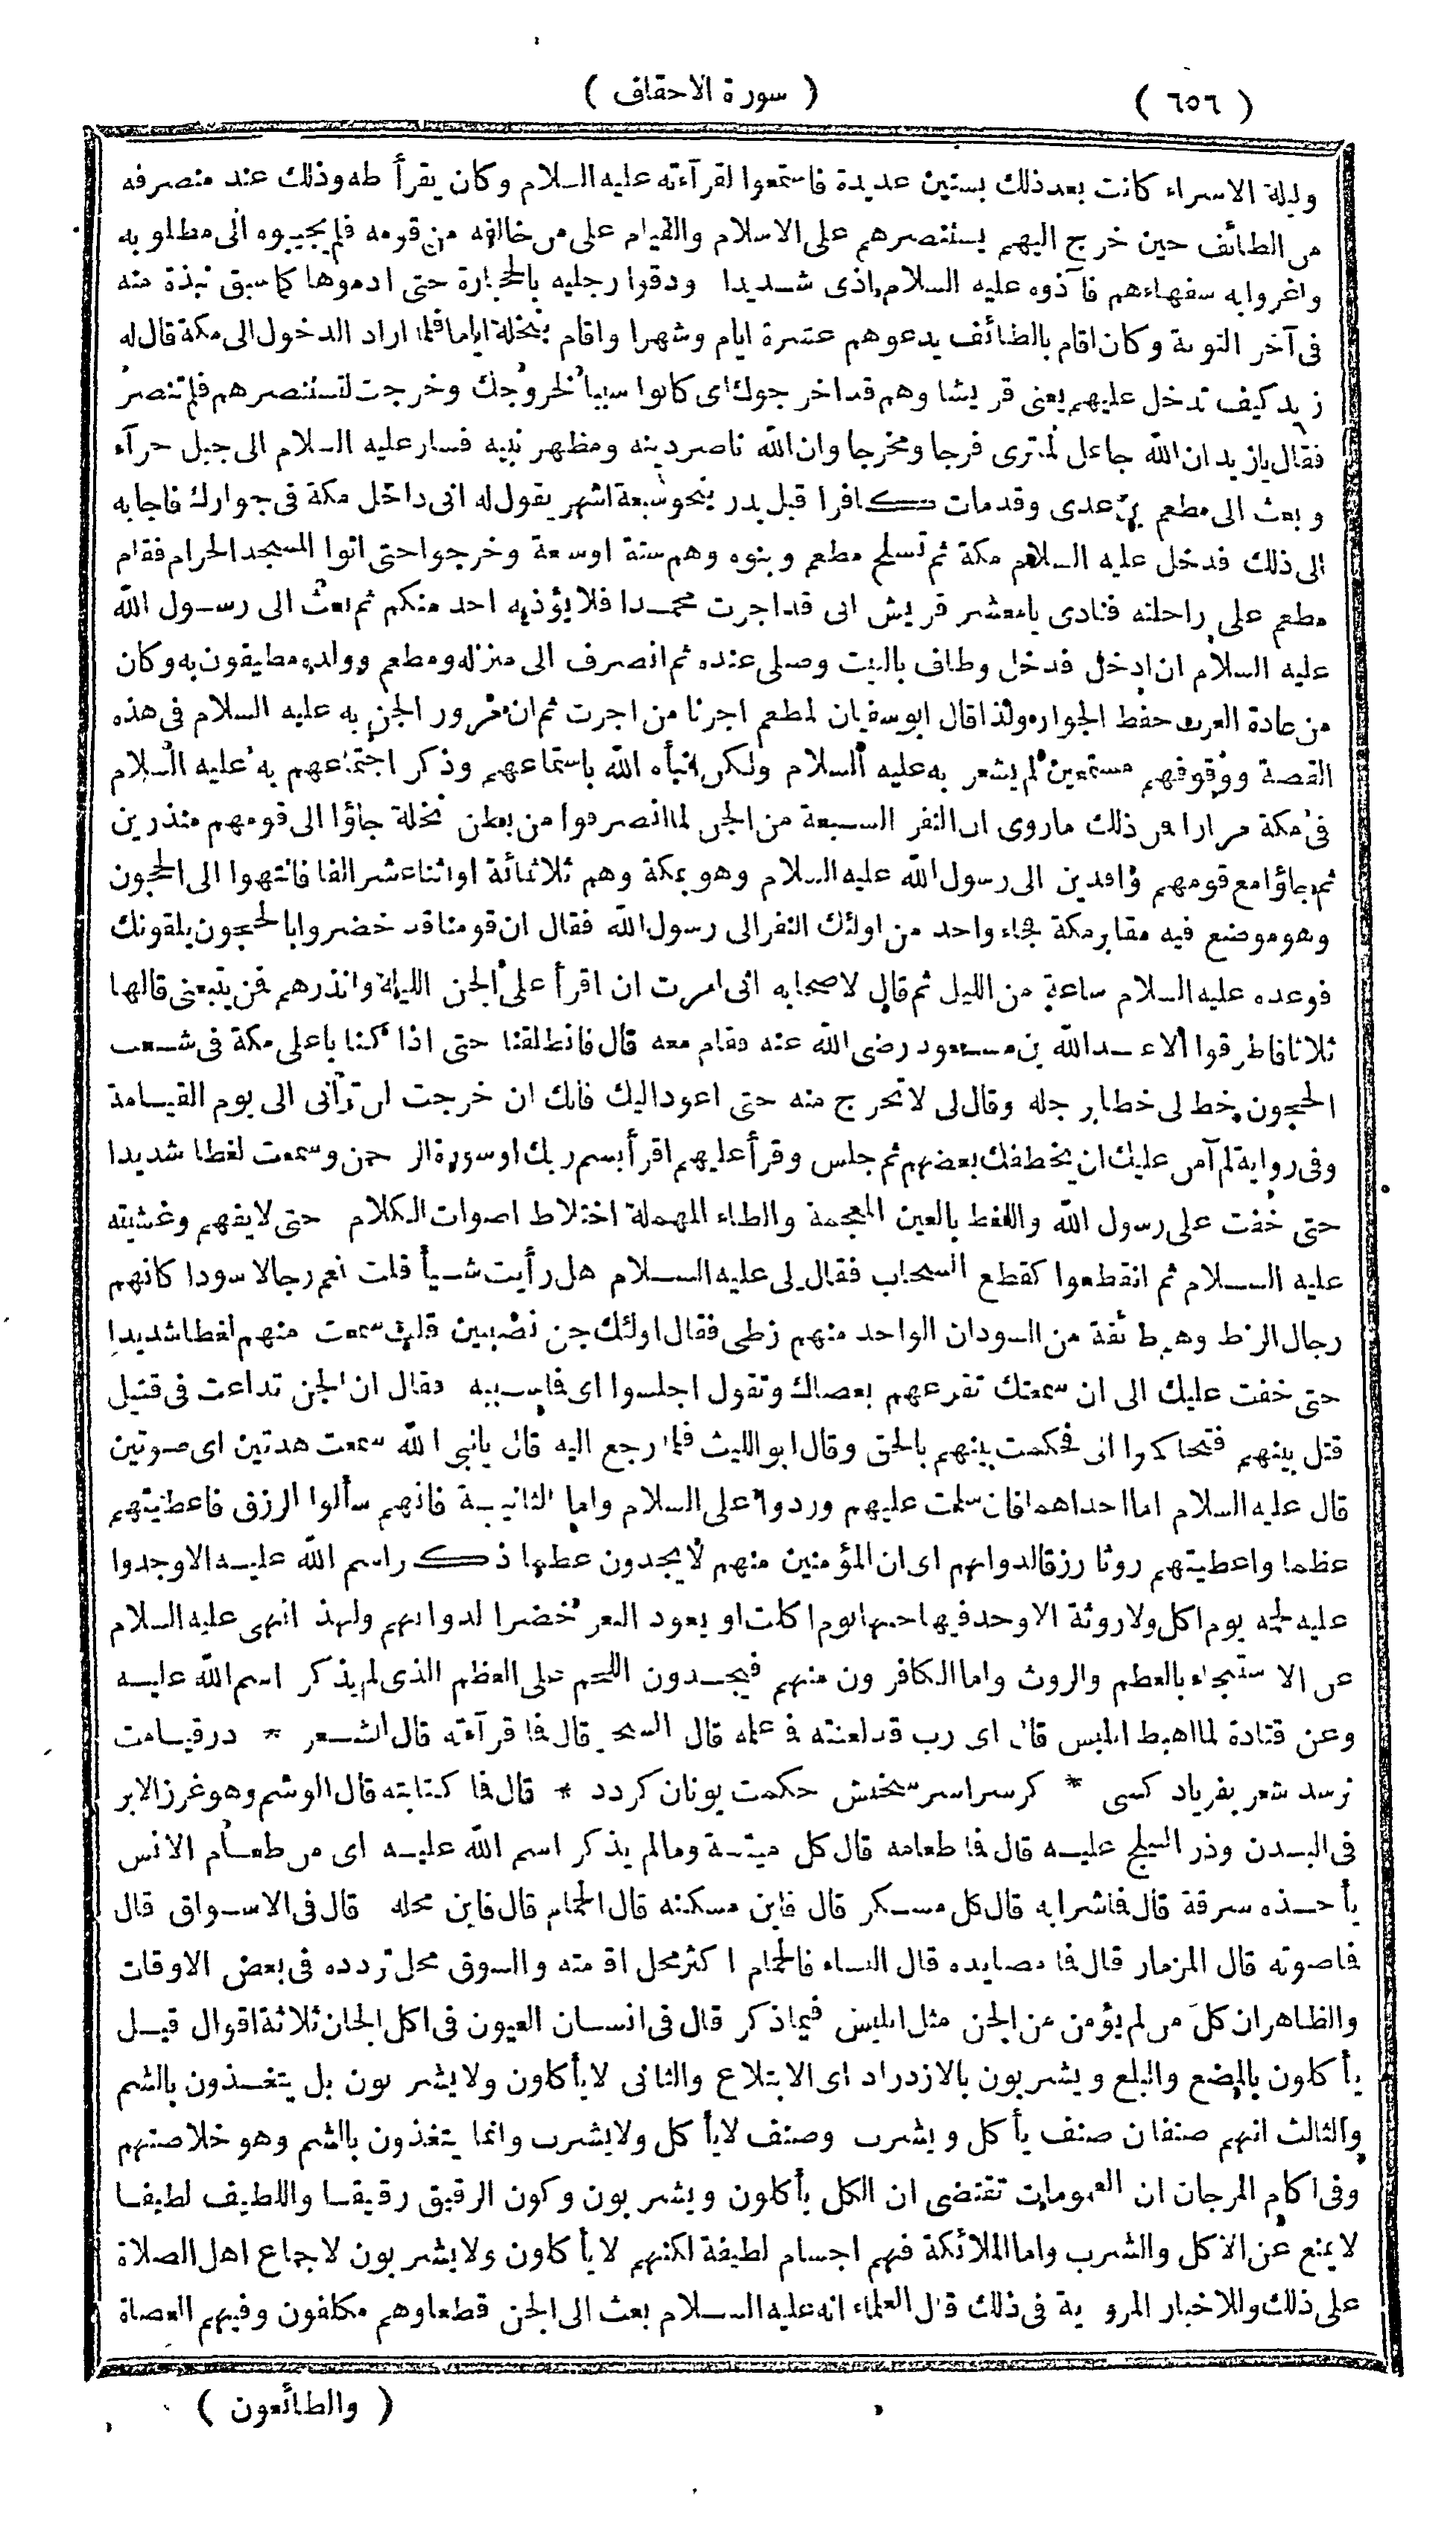 ( ٦٥٦ )
( سورة الاحقاف )
وليلة الاسراء كانت بعد ذلك بسنين عديدة فاستمعوا لقرآءته عليه السلام وكان يقرأ طه وذلك عند منصرفه
من الطائف حين خرج اليهم يستنصرهم على الاسلام والقيام على من خالفه من قومه فلم يجيبوه الى مطلوبه
واغروا به سفهاءهم فآذوه عليه السلام اذى شديدا ودقوا رجليه بالحجارة حتى ادموها كما سبق نبذة منه
فى آخر التوبة وكان اقام بالطائف يدعوهم عشرة ايام وشهرا واقام بنخلة اياما فلما اراد الدخول الى مكة قال له
زيد كيف تدخل عليهم يعنى قريشا وهم قد اخرجوك اى كانوا سببا لخروجك وخرجت لتستنصرهم فلم تنصر
فقال يازيد ان الله جاعل لما ترى فرجا ومخرجا وان الله ناصر دينه ومظهر نبيه فسار عليه السلام الى جبل حرآء
وبعث الى مطعم بن عدى وقد مات كافرا قبل بدر بنحو سبعة اشهر يقول له انى داخل مكة فى جوارك فاجابه
الى ذلك فدخل عليه السلام مكة ثم تسلح مطعم وبنوه وهم ستة اوسعة وخرجوا حتى اتوا المسجد الحرام فقام
مطعم على راحلته فنادى يامعشر قريش انى قد اجرت محمدا فلا يؤذيه احد منكم ثم بعث الى رسول الله
عليه السلام ان ادخل فدخل وطاف بالبيت وصلى عنده ثم انصرف الى منزله ومطعم وولده مطيقون به وكان
من عادة العرب حفظ الجوار ولذا قال ابو سفيان لمطعم اجرنا من اجرت ثم ان مرور الجن به عليه السلام فى هذه
القصة ووقوفهم مستمعين لم يشعر به عليه السلام ولكن انبأه الله باستماعهم وذكر اجتماعهم به عليه السلام
فى مكة مرارا فمن ذلك ماروى ان النفر السبعة من الجن لما انصرفوا من بطن نخلة جاؤا الى قومهم منذرين
ثم جاؤا مع قومهم وافدين الى رسول الله عليه السلام وهو بمكة وهم ثلاثمائة او اثناعشر الفا فانتهوا الى الحجون
وهو موضع فيه مقابر مكة فجاء واحد من اولئك النفر الى رسول الله فقال ان قومنا قد حضروا بالحجون يلقونك
فوعده عليه السلام ساعة من الليل ثم قال لاصحابه انى امرت ان اقرأ على الجن الليلة وانذرهم فمن يتبعنى قالها
ثلاثا فاطرقوا الا عبد الله بن مسعود رضى الله عنه فقام معه قال فانطلقنا حتى اذا كنا باعلى مكة فى شعب
الحجون خط لى خطا برجله وقال لى لاتخرج منه حتى اعود اليك فانك ان خرجت لن ترانى الى يوم القيامة
وفى رواية لم آمن عليك ان يخطفك بعضهم ثم جلس وقرأ عليهم اقرأ بسم ربك او سورة الرحمن وسمعت لغطا شديدا
حتى خفت على رسول الله واللغط بالغين المعجمة والطاء المهملة اختلاط اصوات الكلام حتى لايفهم وغشيته
عليه السلام ثم انقطعوا كقطع السحاب فقال لى عليه السلام هل رأيت شيأ قلت نعم رجالا سودا كانهم
رجال الزط وهم طائفة من السودان الواحد منهم زطى فقال اولئك جن نصيبين قلت سمعت منهم لغطا شديدا
حتى خفت عليك الى ان سمعتك تقرعهم بعصاك وتقول اجلسوا اى فما سببه فقال ان الجن تداعت فى قتيل
قتل بينهم فتحاكموا الى فحكمت بينهم بالحق وقال ابو الليث فلما رجع اليه قال يانبى الله سمعت هدتين اى صوتين
قال عليه السلام اما احداهما فان سلمت عليهم وردوا على السلام واما الثانية فانهم سألوا الرزق فاعطيتهم
عظما واعطيتهم روثا رزقا لدوابهم اى ان المؤمنين منهم لايجدون عظما ذكر اسم الله عليه الا وجدوا
عليه لحمه يوم اكل ولا روثة الا وجد فيها حبها يوم اكلت او يعود البعر خضرا لدوابهم ولهذا نهى عليه السلام
عن الاستنجاء بالعظم والروث واما الكافرون منهم فيجدون اللحم على العظم الذى لم يذكر اسم الله عليه
وعن قتادة لما اهبط ابليس قال اى رب قد لعنته فما عمله قال السحر قال فما قرآءته قال الشعر * درقيامت
نرسد شعر بفرياد كسى * كر سراسر سخنش حكمت يونان كردد * قال فما كتابته قال الوشم وهو غرز الابر
فى البدن وذر النيلج عليه قال فما طعامه قال كل ميتة ومالم يذكر اسم الله عليه اى من طعام الانس
يأخذه سرقة قال فما شرابه قال كل مسكر قال فاين مسكنه قال الحمام قال فاين محله قال فى الاسواق قال
فما صوته قال المزمار قال فما مصايده قال النساء فالحمام اكثر محل اقامته والسوق محل تردده فى بعض الاوقات
والظاهر ان كل من لم يؤمن من الجن مثل ابليس فيما ذكر قال فى انسان العيون فى اكل الجان ثلاثة اقوال قيل
يأكلون بالمضغ والبلع ويشربون بالازدراد اى الابتلاع والثانى لايأكلون ولايشربون بل يتغذون بالشم
والثالث انهم صنفان صنف يأكل ويشرب وصنف لايأكل ولايشرب وانما يتغذون بالشم وهو خلاصتهم
وفى اكام المرجان ان العمومات تقتضى ان الكل يأكلون ويشربون وكون الرقيق رقيقا واللطيف لطيفا
لا يمنع عن الاكل والشرب واما الملائكة فهم اجسام لطيفة لكنهم لايأكلون ولايشربون لاجماع اهل الصلاة
على ذلك وللاخبار المروية فى ذلك قال العلماء انه عليه السلام بعث الى الجن قطعا وهم مكلفون وفيهم العصاة
( والطائعون )